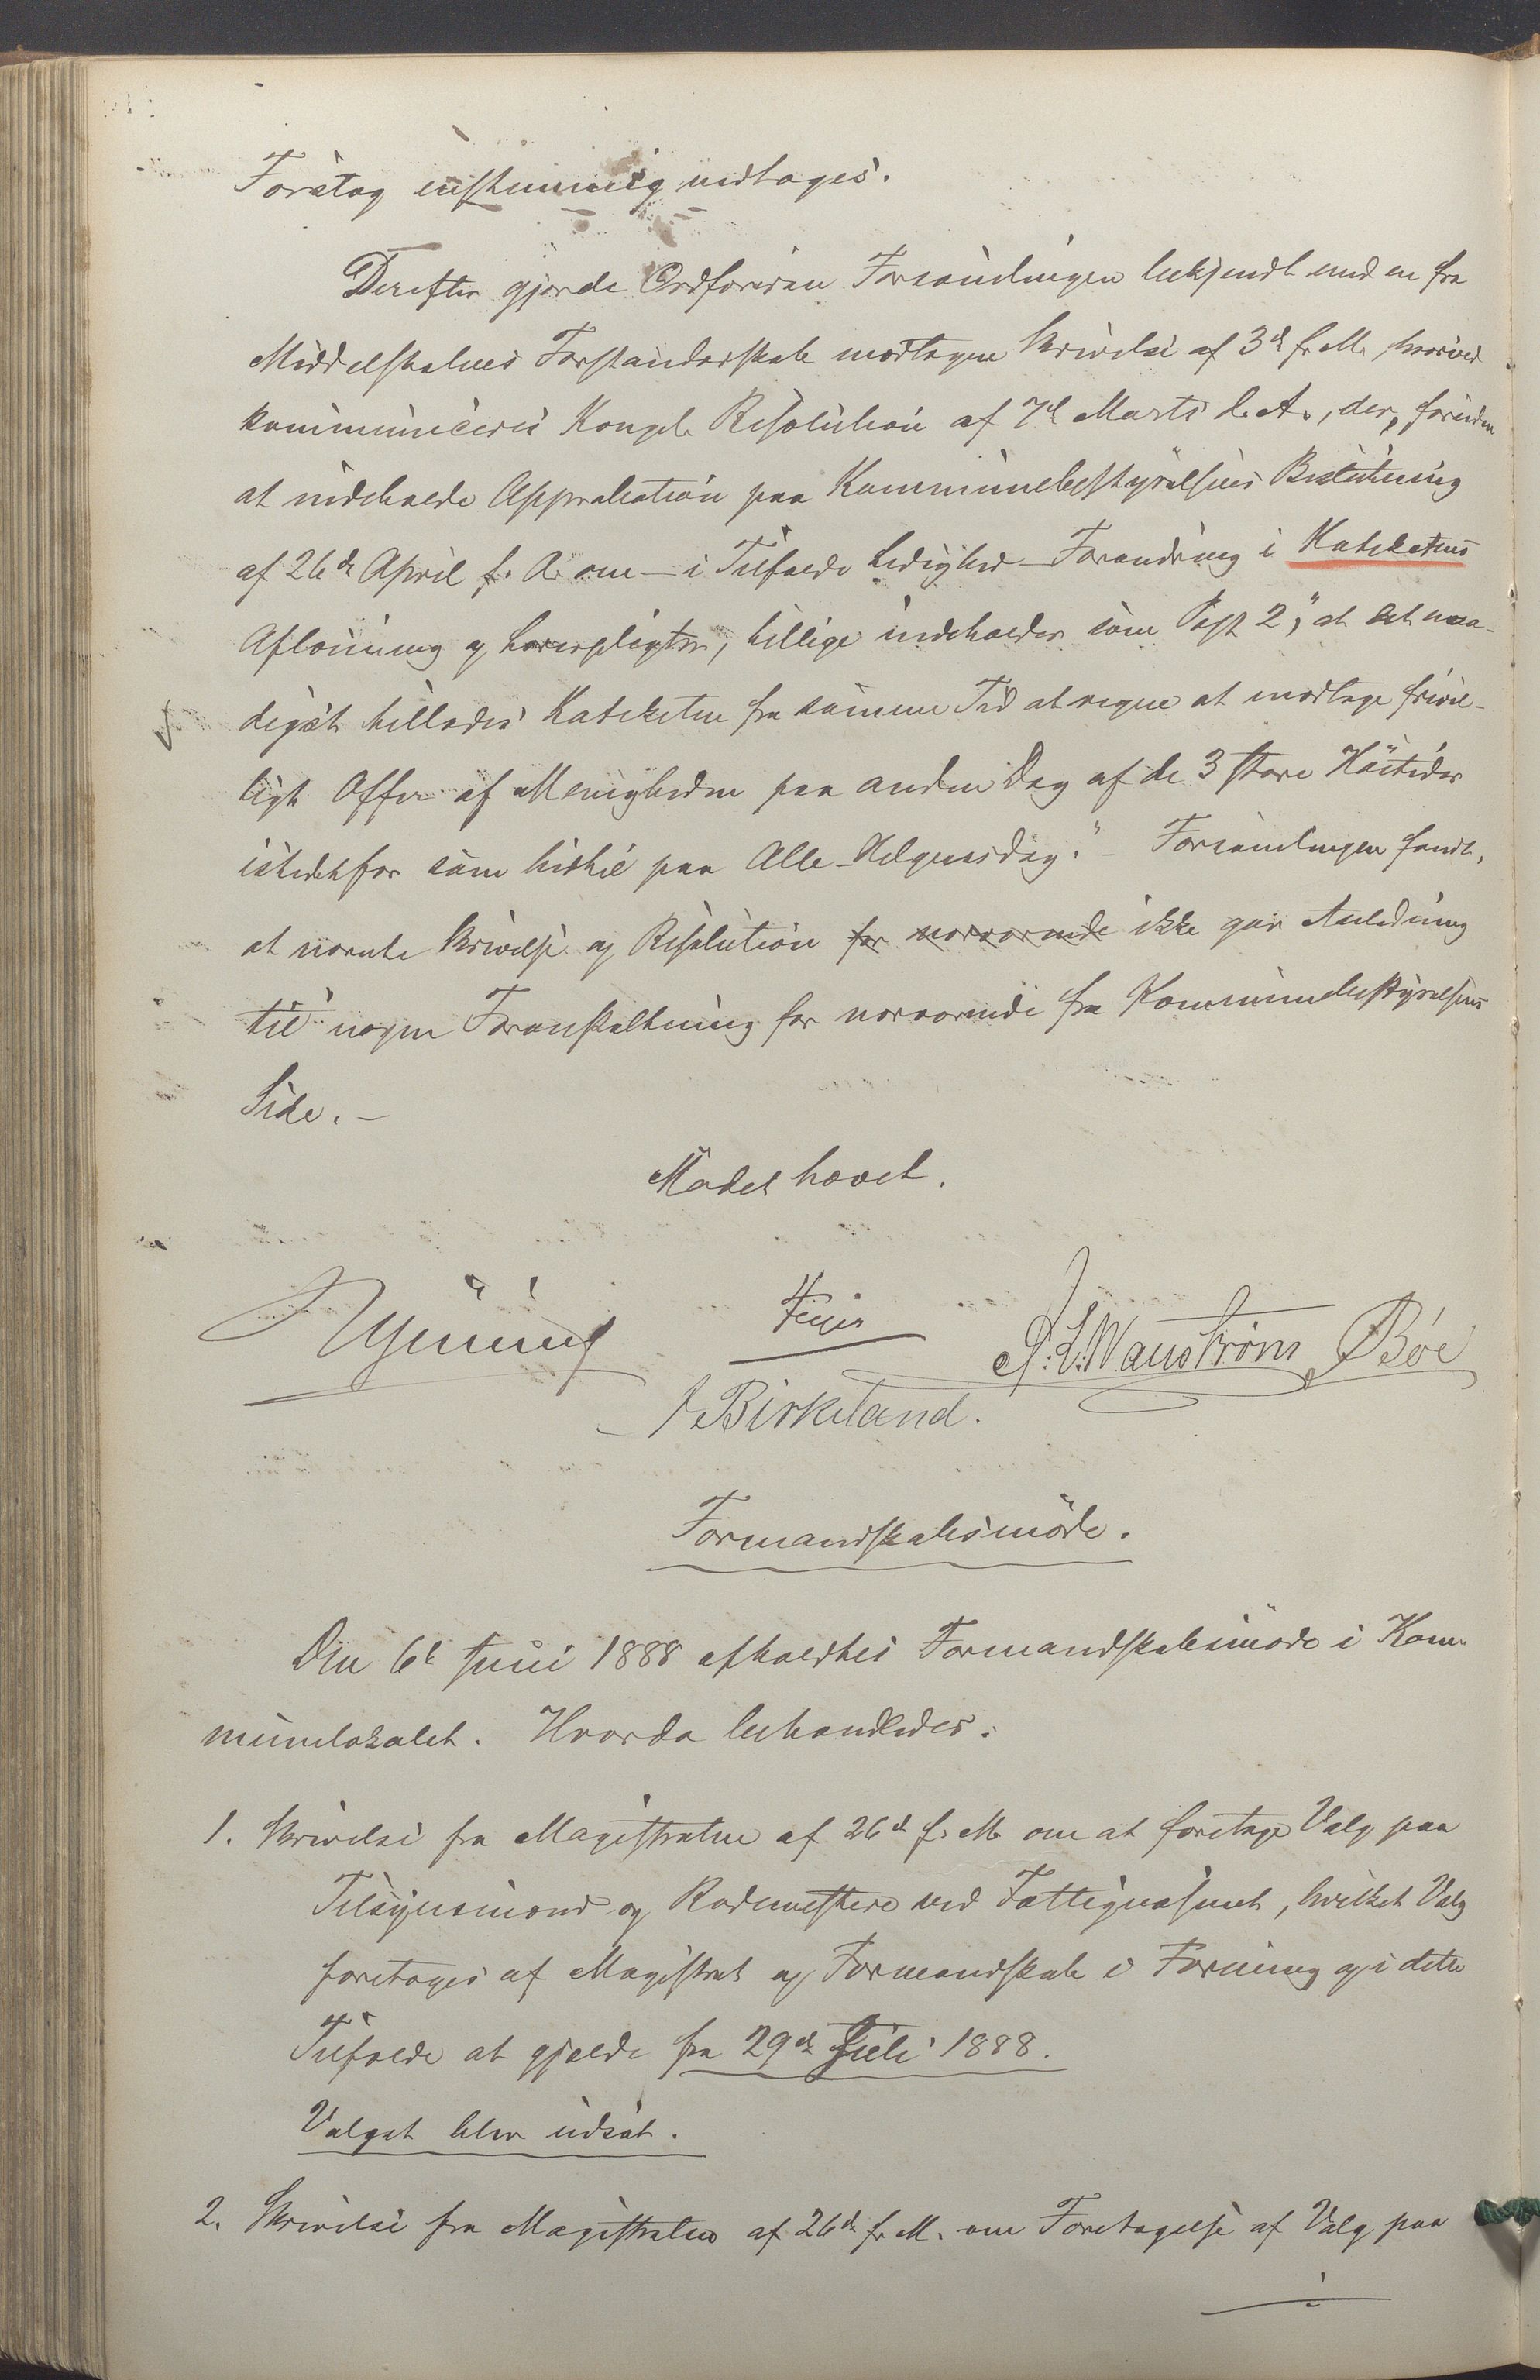 Forslag enstemmig vedtoges.
Derefter gjorde Ordføreren Forsamlingen bekjendt med en fra
Middelskolens Forstanderskab modtagen Skrivelse af 3de f. M., hvorved
kommuniceres Kongel. Resolution af 7de Marts d. A., der, foruden
at indeholde Approbation paa Kommunebestyrelsens Beslutning
af 26de April f. A. om – i Tilfælde Ledighed – Forandring i Katekettens
Aflønning og Læsepligter, tillige indeholder som Post 2, "at det naa-
digst tillades Kateketen fra samme Tid at regne at modtage frivil-
ligt Offer af Menigheden paa anden Dag af de 3 store Høitider
istedetfor som hidtil paa Alle-Helgensdag." – Forsamlingen fandt,
at nævnte Skrivelse og Resolution for nærværende ikke gav Anledning
til nogen Foranstaltning for nærværende fra Kommunebestyrelsens
Side. –
Mødet hævet.
Birkeland.
P. L. Wanstrøm Bøe
Formandskabsmøde.
Den 6te Juni 1888 afholdtes Formandskabsmøde i Kom-
munelokalet. Hvorda behandledes:
1. Skrivelse fra Magistraten af 26de f. M. om at foretage Valg paa
Tilsynsmænd og Rodemestere ved Fattigvæsenet, hvilket Valg
foretages af Magistrat og Formandskab i Forening og i dette
Tilfælde at gjælde fra 29de Juli 1888.
Valget blev udsat.
2. Skrivelse fra Magistraten af 26de f. M. om Foretagelse af Valg paa